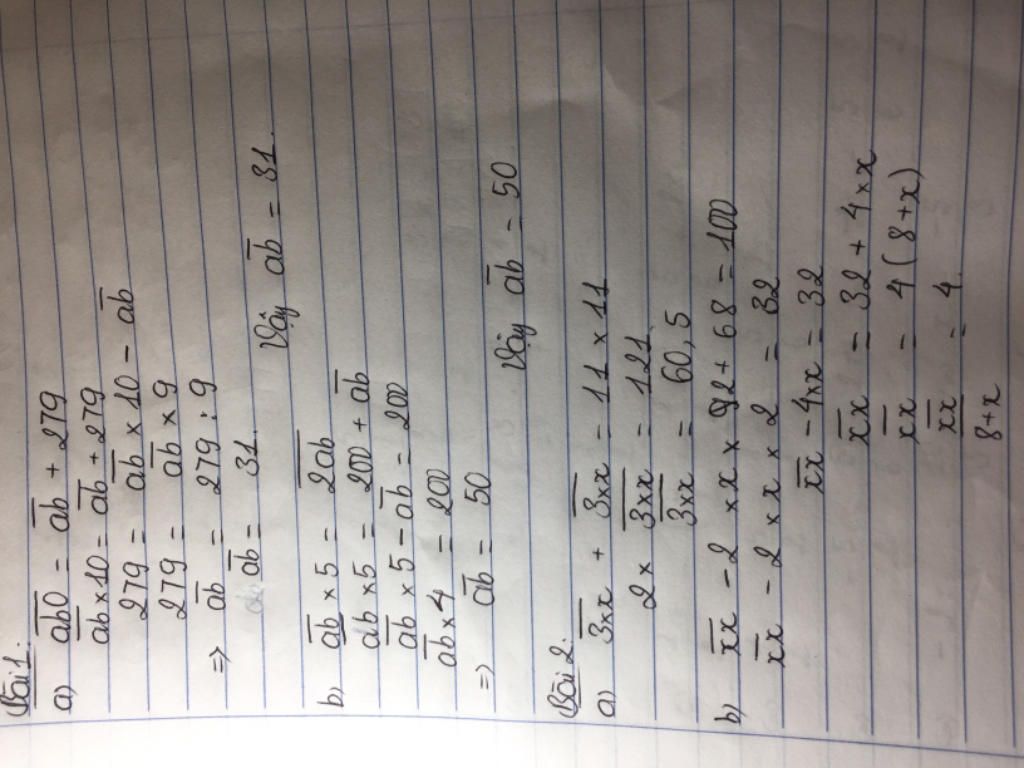 Bài 1:
a) ab̅0̅ = a̅b̅ + 279
a̅b̅ × 10 = a̅b̅ + 279
279 = a̅b̅ × 10 - a̅b̅
279 = a̅b̅ × 9
=> a̅b̅ = 279 : 9
a̅b̅ = 31.
Vậy a̅b̅ = 31.
b) a̅b̅ × 5 = 2̅a̅b̅
ab × 5 = 200 + a̅b̅
a̅b̅ × 5 - a̅b̅ = 200
a̅b̅ × 4 = 200
=> a̅b̅ = 50
Vậy a̅b̅ = 50
Bài 2:
a) 3̅×̅x̅ + 3̅×̅x̅ = 11 × 11
2 × 3̅×̅x̅ = 121
3̅×̅x̅ = 60,5
b) x̅x̅ - 2 × x × 2 + 68 = 100
x̅x̅ - 2 × x × 2 = 32
x̅x̅ - 4 × x = 32
x̅x̅ = 32 + 4 × x
x̅x̅ = 4 (8 + x)
x̅x̅ / 8 + x = 4.